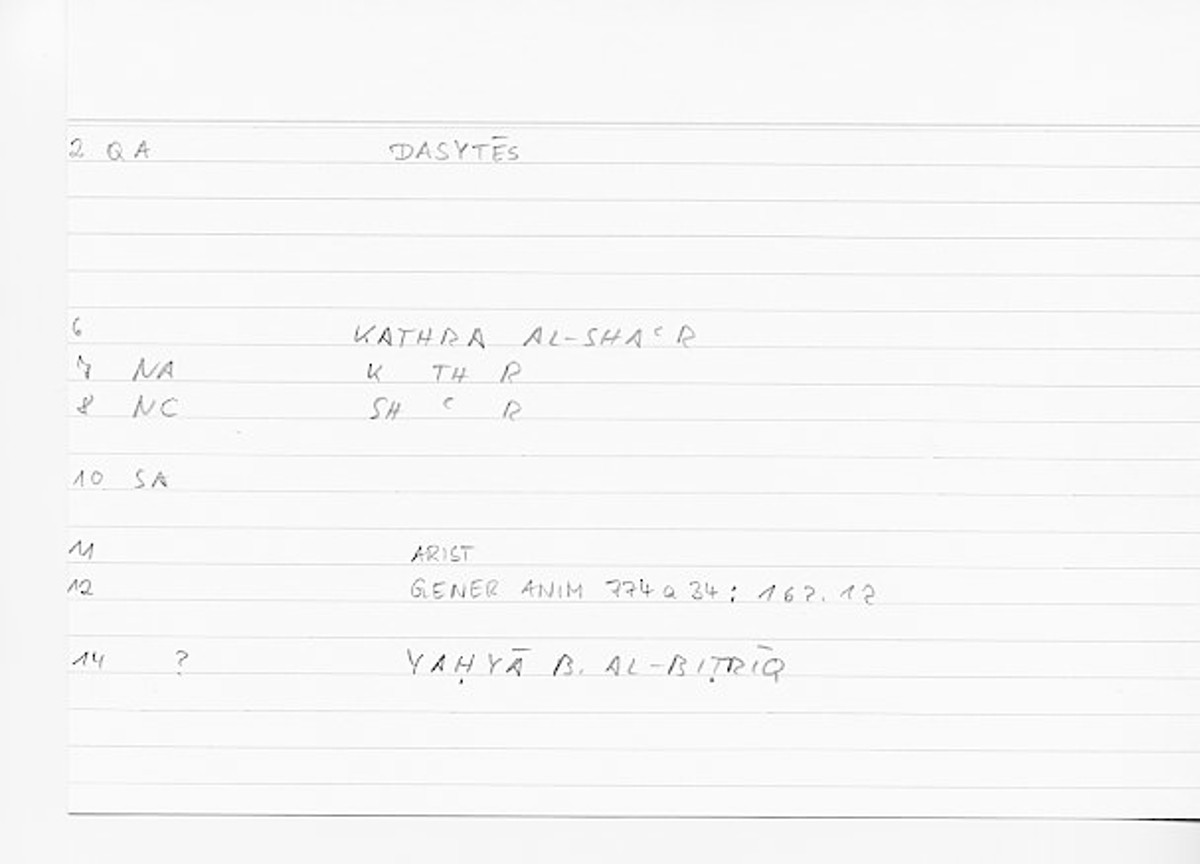 2 QA DASYTĒS
6 KATHRA AL-SHAʿR
7 NA K TH R
8 NC SH ʿ R
10 SA
11 ARIST
12 GENER ANIM 774a34:
14 ? YAḤYĀ B. AL-BIṬRĪQ